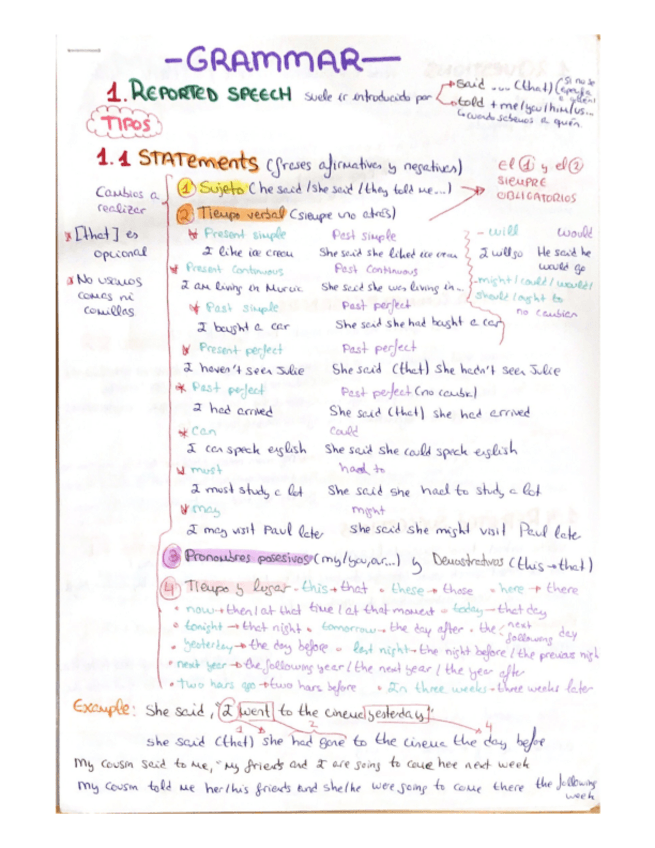 -GRAMMAR-
1. REPORTED SPEECH suele ir introducido por
said .... (that) (si no se
told + me/you/him/us...
cuando sabemos a quién
TIPOS
1.1 STATEMENTS (frases afirmativas y negativas)
el ① y el ②
SIEMPRE
OBLIGATORIOS
Cambios a
realizar
* [that] es
opcional
* No usamos
comas ni
comillas
① Sujeto (he said / she said / they told me...)
② Tiempo verbal (siempre uno atrás)
* Present simple Past simple
I like ice cream She said she liked ice cream
* Present continuous Past continuous
I am living in Murcia She said she was living in...
* Past simple Past perfect
I bought a car She said she had bought a car
- will would
I will go He said he
would go
- might / could / would /
should / ought to
no cambian
* Present perfect Past perfect
I haven't seen Julie She said (that) she hadn't seen Julie
* Past perfect Past perfect (no cambia)
I had arrived She said (that) she had arrived
* Can could
I can speak english She said she could speak english
* must had to
I must study a lot She said she had to study a lot
* may might
I may visit Paul later She said she might visit Paul late
③ Pronombres posesivos (my/your...) y Demostrativos (this → that)
④ Tiempo y lugar - this → that • these → those • here → there
• now → then / at that time / at that moment • today → that day
• tonight → that night • tomorrow → the day after • the next/following day
• yesterday → the day before • last night → the night before / the previous nigh
• next year → the following year / the next year / the year after
• Two hars go → two hars before • In three weeks → three weeks later
Example: She said, "I went to the cinema yesterday"
1 2 4
she said (that) she had gone to the cinema the day before
My cousin said to me, "My friends and I are going to come here next week
My cousin told me her/his friends and she/he were going to come there the following
week